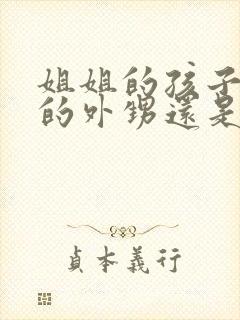 姐姐的孩子
的外甥還是
貞本義行